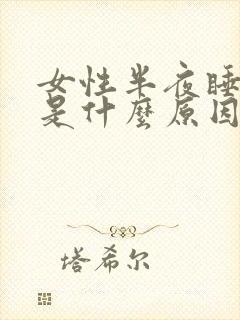 女性半夜睡
是什麼原因
塔希尔